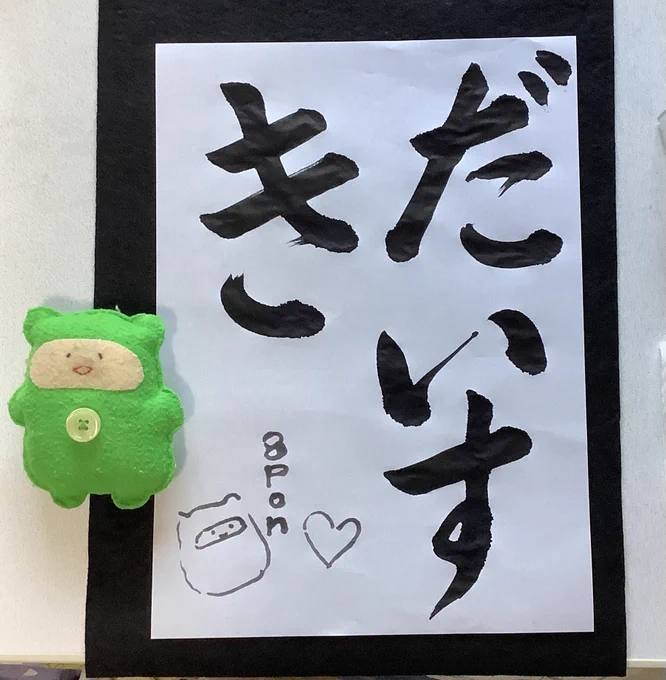 だいす
き
8pon